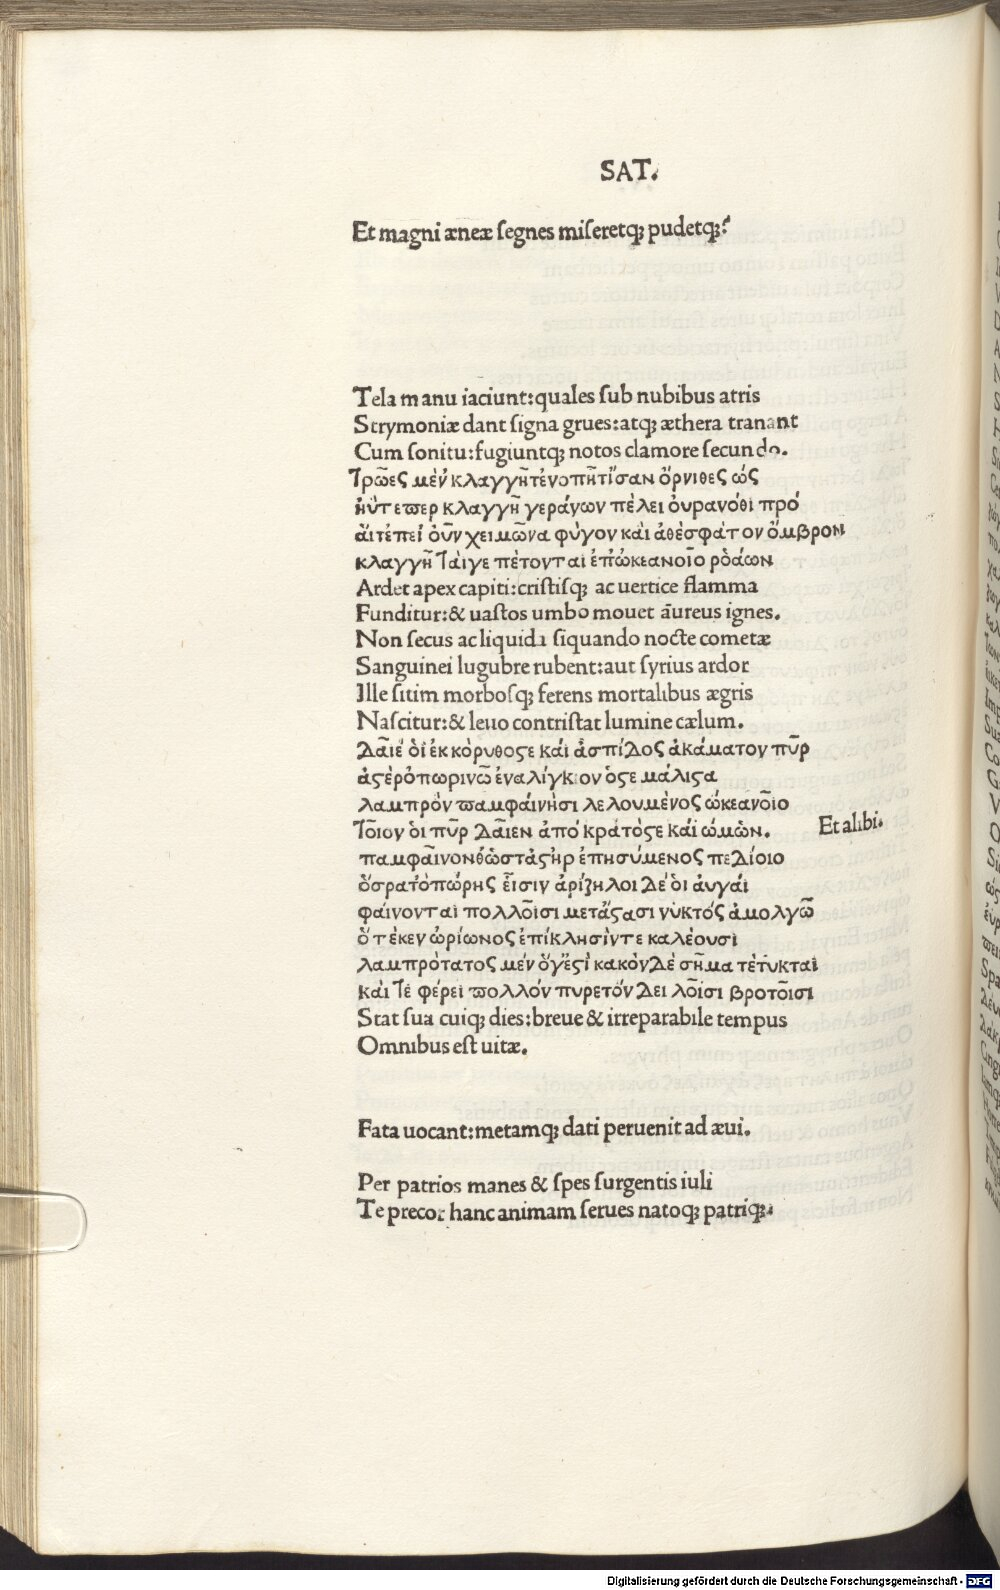 SAT.
Et magni æneæ ſegnes miſeretq; pudetq;?
Tela manu iaciunt:quales ſub nubibus atris
Strymoniæ dant ſigna grues:atq; æthera tranant
Cum ſonitu:fugiuntq; notos clamore ſecundo.
Τρῶες μὲν κλαγγῆτένοπῆτἴσαν ὄρνιθες ὡς
ἠύτεπερ κλαγγὴ γεράνων πέλει ὀυρανόθι πρό
ἅιτἐπεὶ ὀυν χειμῶνα φύγον κὰι ἀθέσφατον ὄμβρον
κλαγγῆ τάιγε πέτονται ἐπὠκεανοῖο ῥοάων
Ardet apex capiti:criſtiſq; ac uertice flamma
Funditur:& uaſtos umbo mouet āureus ignes.
Non ſecus ac liquida ſiquando nocte cometæ
Sanguinei lugubre rubent:aut ſyrius ardor
Ille ſitim morboſq; ferens mortalibus ægris
Naſcitur:& leuo contriſtat lumine cælum.
Δαῖέ ὁι ἐκ κόρυθοςε κάι ἀσπίδος ἀκάματον πῦρ
ἀςέρ᾽ὀπωρινῶ ἐναλίγκιον ὅςε μάλιςα
λαμπρὸν παμφάινησι λελουμένος ὠκεανοῖο
Τοῖον ὁι πῦρ δαῖεν ἀπό κρατόςε κάι ὤμων. Et alibi.
παμφαῖνονθὡστἀςὴρ ἐπησύμενος πεδίοιο
ὅσρατ᾽ὀπώρης εἶσιν ἀρίζηλοι δέ ὁι ἀυγάι
φάινονται πολλοῖσι μετἄςασι νυκτός ἀμολγῶ
ὅτέκεν ὠρίωνος ἐπίκλησίντε καλέουσι
λαμπρότατος μέν ὅγἐςί κακόνδέ σῆμα τέτυκται
κάι τέ φέρει πολλόν πυρετόν δειλοῖσι βροτοῖσι
Stat ſua cuiq; dies:breue & irreparabile tempus
Omnibus eſt uitæ.
Fata uocant:metamq; dati peruenit ad æui.
Per patrios manes & ſpes ſurgentis iuli
Te precor hanc animam ſerues natoq; patriq;.
Digitalisierung gefördert durch die Deutsche Forschungsgemeinschaft - DFG